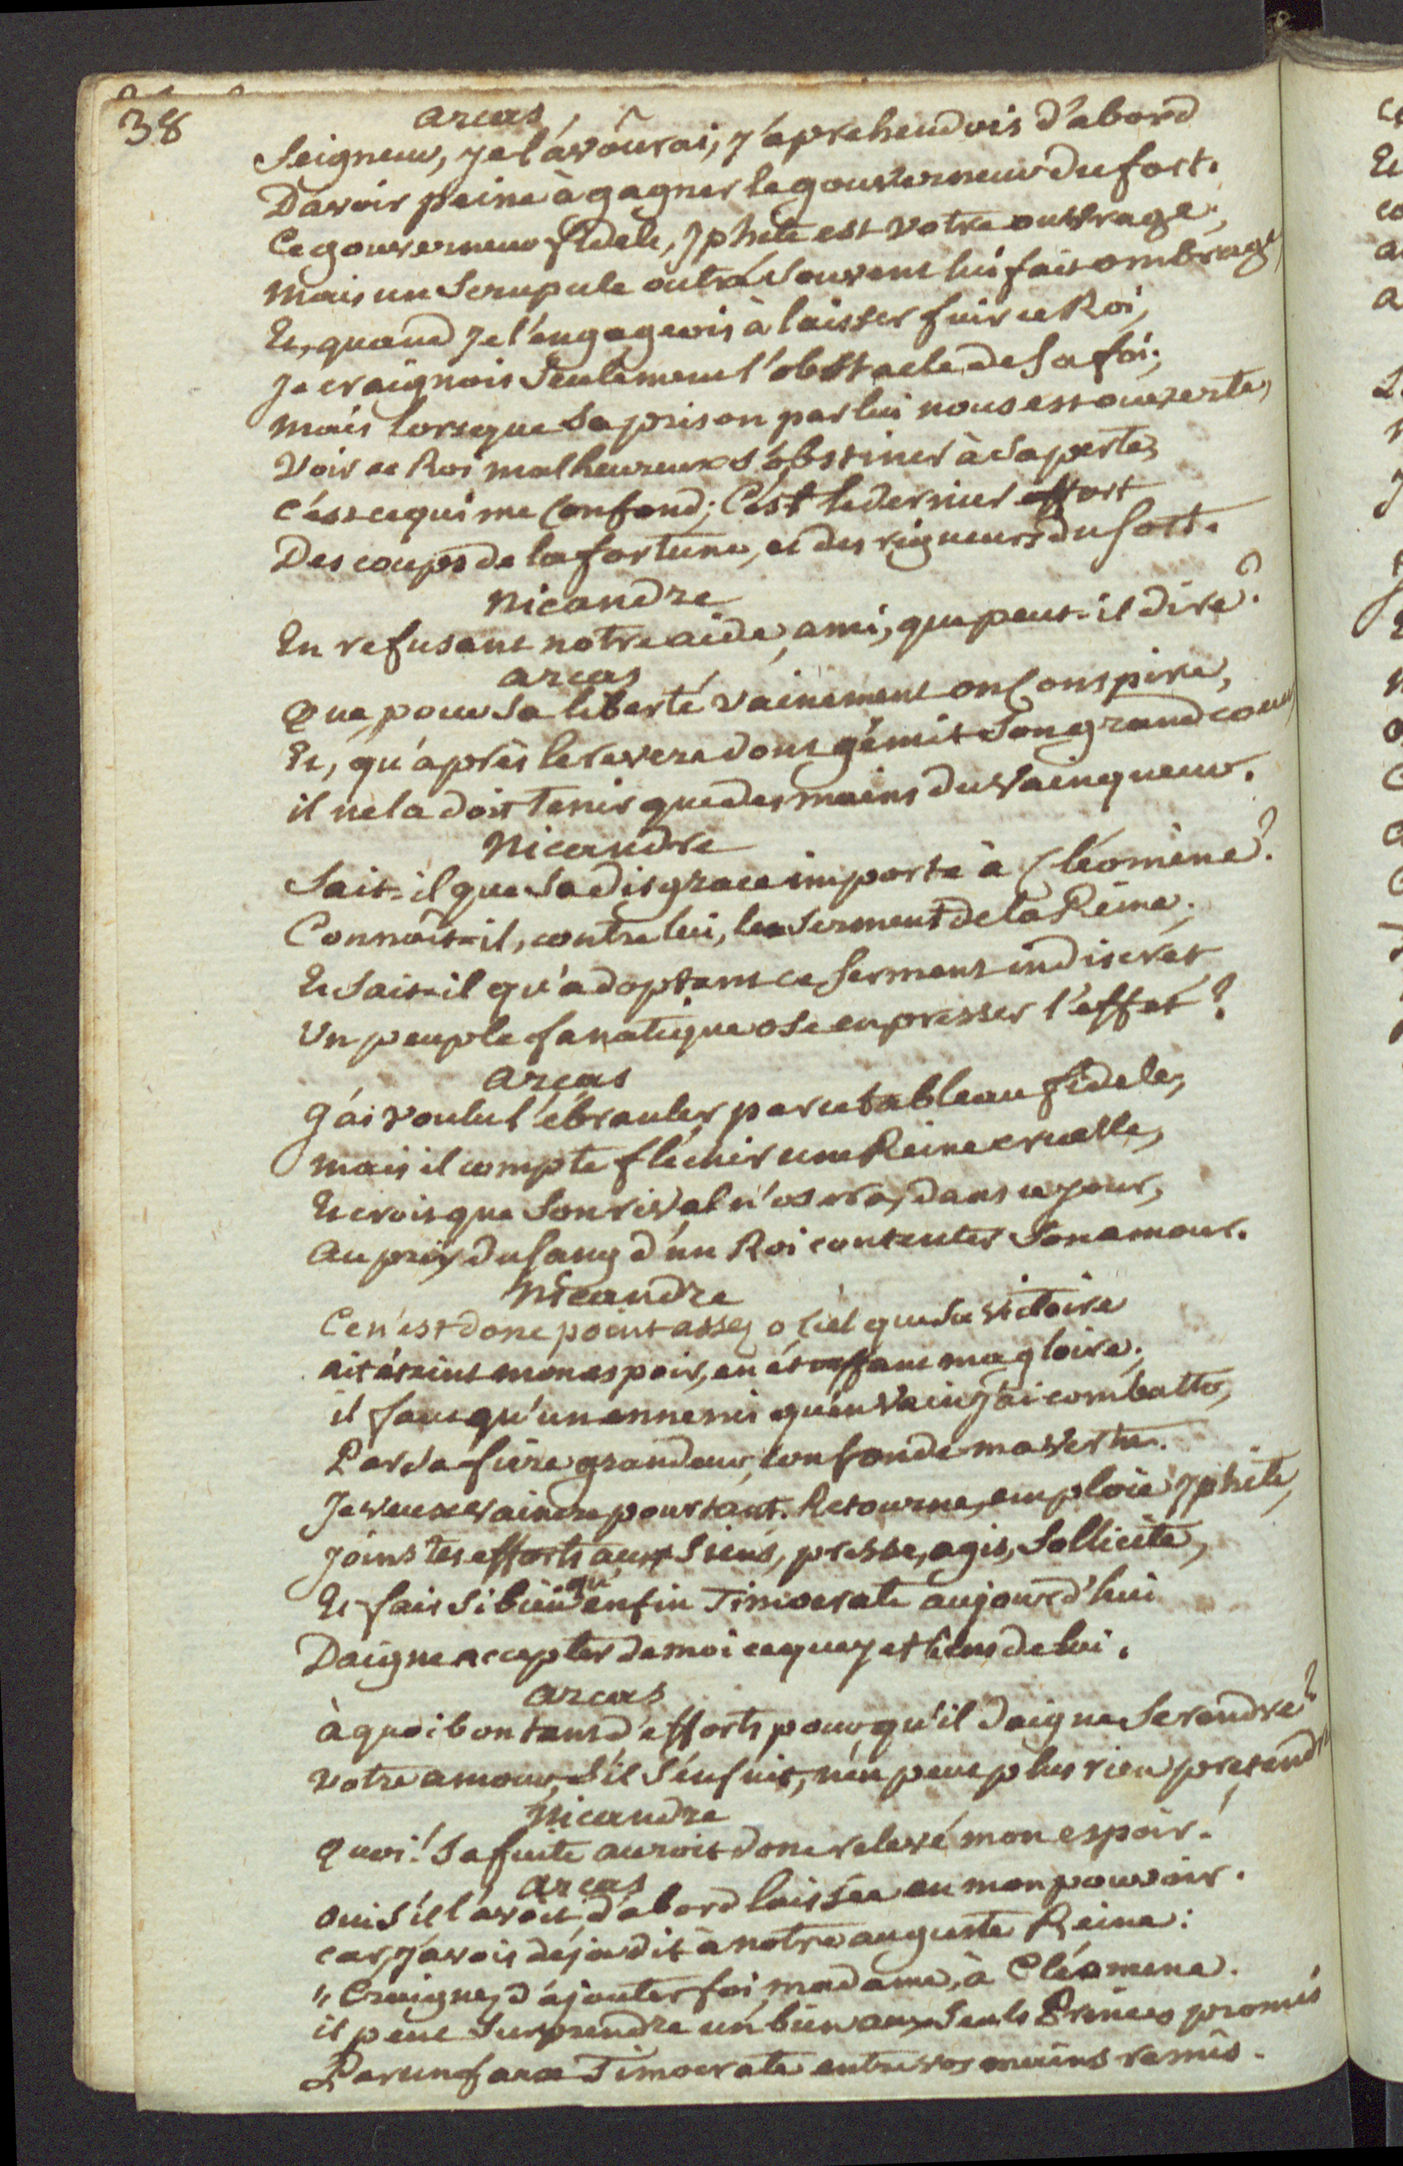 38
arcas
Seigneur, je l'avoûrai, j'aprehendois d'abord
Davoir peine à gagner le gouverneur du fort.
Ce gouverneur fidele, Iphite est votre ouvrage;
mais un Scrupule outré souvent lui fait ombrage,
Et, quand Je l'engageois à laisser fuir ce Roi,
Je craignois Seulement l'obstacle de sa foi;
mais lorsque Sa prison par lui nous est ouverte,
Voir ce Roi malheureux s'obstiner à sa perte,
c'est ce qui me Confond; C'est le dernier effort
Des coups de la fortune, et des rigueurs du sort.
Nicandre
En refusant notre aide, ami, que peut-il dire?
arcas
Que, pour Sa liberté vainement on Conspire,
Et, qu'après le revers dont gémit Son grand coeur,
il ne la doit tenir que des mains du vainqueur.
Nicandre
Sait-il que Sa disgrace importe à Cléomène?
Connoit-il, contre lui, le Serment de la Reine;
Et Sait-il qu'adoptant ce Serment indiscret
Un peuple fanatique ose en presser l'effet?
arcas
J'ai voulu l'ébranler par ce tableau fidele;
mais il compte fléchir une Reine cruelle,
Et croit que Son rival n'osera, dans ce jour,
au prix du sang d'un Roi contenter Son amour.
Nicandre
Ce n'est donc point assez o Ciel que Sa victoire
ait éteint mon espoir, en étouffant ma gloire;
il faut qu'un ennemi qu'en vain j'ai combattu,
Par Sa fière grandeur, confonde ma vertu.
Je veux vaincre pourtant. Retourne, emploie Iphite,
Joins tes efforts aux Siens, presse, agis, Sollicite,
Et fais Si bien qu'enfin Timocrate aujourd'hui
Daigne accepter de moi ce que je tiens de lui.
arcas
à quoi bon tant d'efforts pour qu'il daigne Se rendre?
Votre amour, S'il S'enfuit, n'en peut plus rien pretendre
Nicandre
Quoi! Sa fuite auroit donc relevé mon espoir!
arcas
oui S'il l'avoit d'abord laissée en mon pouvoir.
car, j'avois déja dit à notre auguste Reine:
"Craignez d'ajouter foi, madame, à Cléomene.
il peut Surprendre un bien aux Seuls Princes promis
Par un faux Timocrate entre vos mains remis.